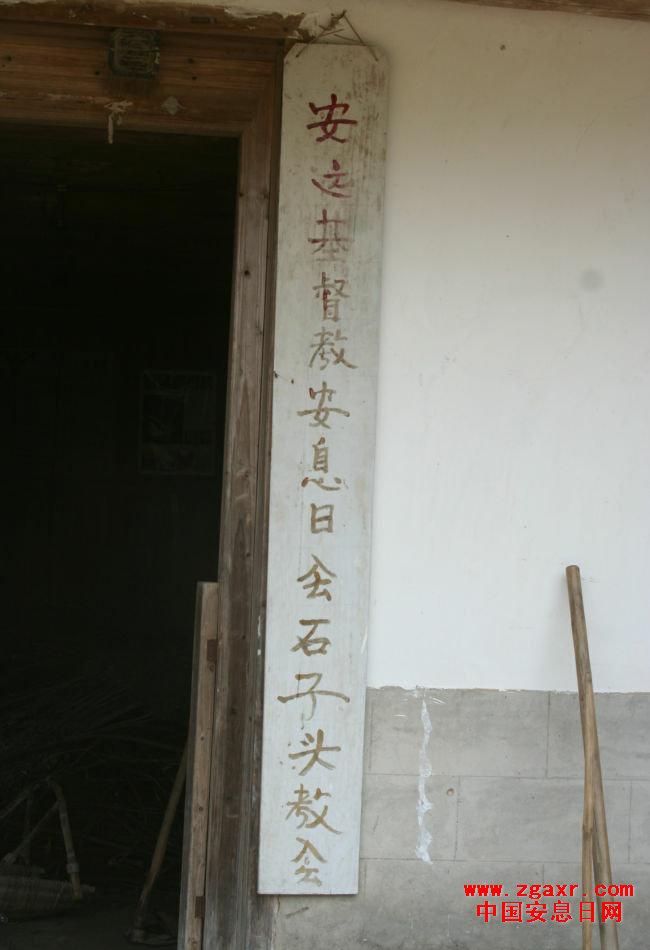 安基督教安息日会石子头教会
www.zgaxr.com
中国安息日网